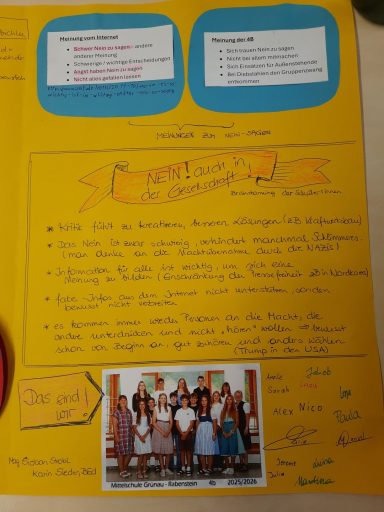 Meinung vom Internet
Schwer Nein zu sagen - andere
anderer Meinung
Schwierige / wichtige Entscheidungen
Angst haben Nein zu sagen
Nicht alles gefallen lassen
Meinung der 4B
Sich trauen Nein zu sagen
Nicht bei allem mitmachen
Sich Einsetzen für Außenstehende
Bei Diebstählen den Gruppenzwang
entkommen
MEINUNGEN ZUM NEIN-SAGEN
NEIN! auch in
der Gesellschaft
Brainstorming der SchülerInnen
* Kritik führt zu kreativeren, besseren Lösungen (z.B. Klassenrat)
* Das Nein ist zwar schwierig, verhindert manchmal Schlimmeres.
(man denke an die Machtübernahme durch die NAZIS)
* Information für alle ist wichtig, um sich eine
Meinung zu bilden (Einschränkung der Pressefreiheit zB in Nordkorea)
* Fake-Infos aus dem Internet nicht unterstützen, sondern
bewusst nicht verbreiten
* es kommen immer wieder Personen an die Macht, die
andere unterdrücken und nicht "hören" wollen → bewusst
schon von Beginn an, gut zuhören und anders wählen
(Trump in den USA)
Das sind
wir!
Jakob
Sarah
Alex Nico
Paula
Jerome Luisa
Julia Martina
Karin Sieder, BEd
Mittelschule Grünau - Rabenstein 4b 2025/2026